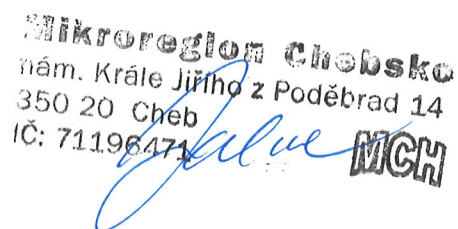 Mikroregion Chebsko
nám. Krále Jiřího z Poděbrad 14
350 20 Cheb
IČ: 71196471
MCH